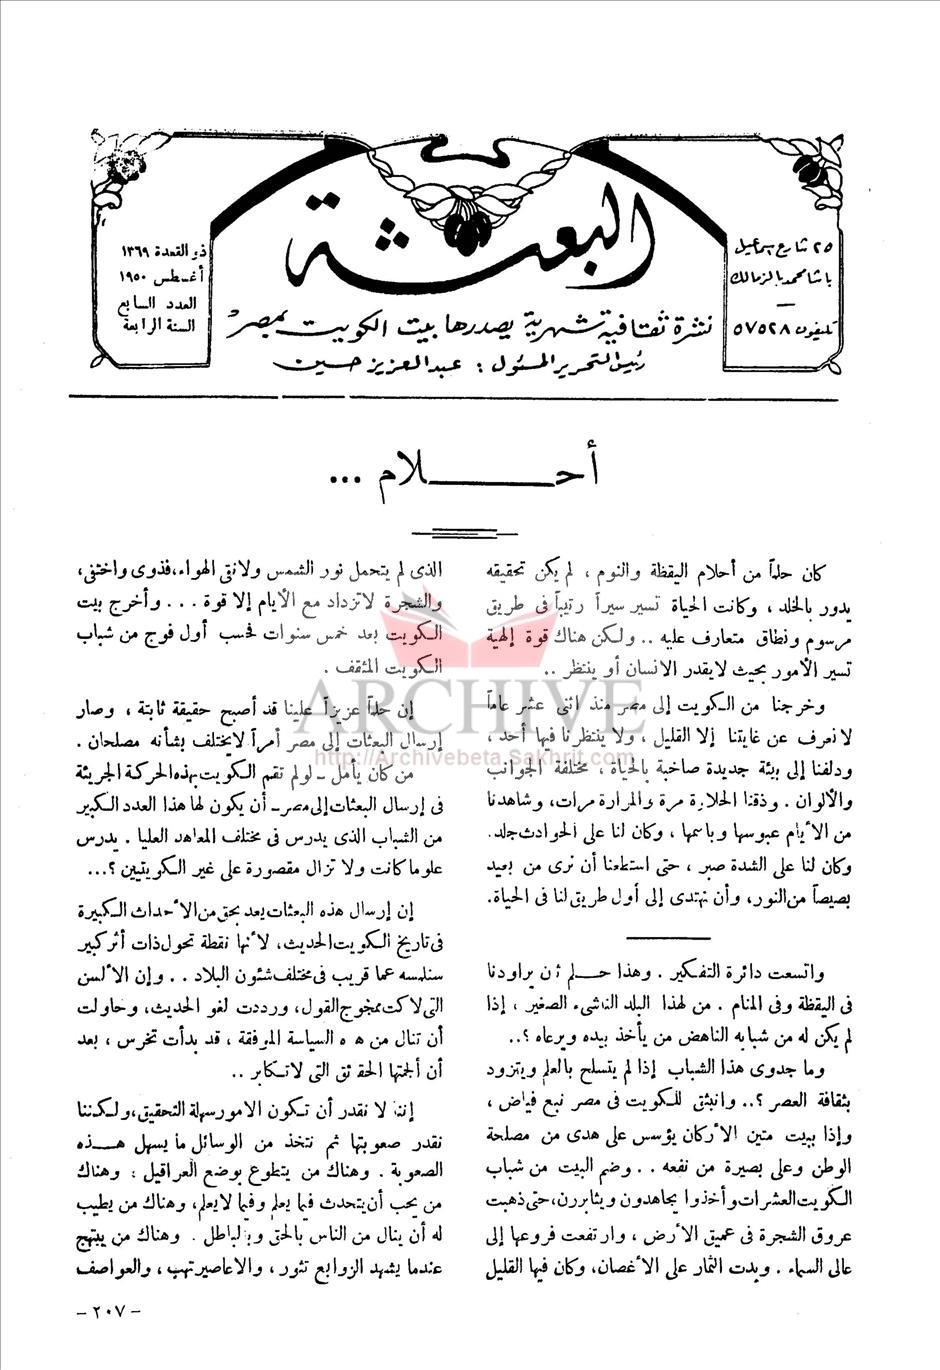 البعثة
نشرة ثقافية شهرية يصدرها بيت الكويت بمصر
رئيس التحرير المسئول : عبد العزيز حسين
٢٥ شارع اسماعيل
باشا محمد بالزمالك
—
تليفون ٥٧٥٢٨
ذو القعدة ١٣٦٩
أغسطس ١٩٥٠
العدد السابع
السنة الرابعة
أحــــلام ...
كان حلماً من أحلام اليقظة والنوم ، لم يكن تحقيقه
يدور بالخلد ، وكانت الحياة تسير سيراً رتيباً فى طريق
مرسوم ونطاق متعارف عليه .. ولكن هناك قوة إلهية
تسير الأمور بحيث لا يقدر الانسان أو ينتظر ..
وخرجنا من الكويت إلى مصر منذ اثنى عشر عاماً
لا نعرف عن غايتنا إلا القليل ، ولا ينتظرنا فيها أحد ،
ودلفنا إلى بيئة جديدة صاخبة بالحياة ، مختلفة الجوانب
والألوان . وذقنا الحلاوة مرة والمرارة مرات، وشاهدنا
من الأيام عبوسها وباسمها ، وكان لنا على الحوادث جلد.
وكان لنا على الشدة صبر ، حتى استطعنا أن نرى من بعيد
بصيصاً من النور، وأن نهتدى إلى أول طريق لنا فى الحياة.
واتسعت دائرة التفكير . وهذا حــلم ثن يراودنا
فى اليقظة وفى المنام . من لهذا البلد الناشىء الصغير ، إذا
لم يكن له من شبابه الناهض من يأخذ بيده ويرعاه ؟..
وما جدوى هذا الشباب إذا لم يتسلح بالعلم ويتزود
بثقافة العصر ؟.. وانبثق للكويت فى مصر نبع فياض ،
وإذا ببيت متين الأركان يؤسس على هدى من مصلحة
الوطن وعلى بصيرة من نفعه . . وضم البيت من شباب
الكويت العشرات وأخذوا يجاهدون ويثابرون، حتى ذهبت
عروق الشجرة فى عميق الأرض ، وارتفعت فروعها إلى
عالى السماء . وبدت الثمار على الأغصان، وكان فيها القليل
الذى لم يتحمل نور الشمس ولا نقى الهواء، فذوى واختفى،
والشجرة لا تزداد مع الأيام إلا قوة . . . وأخرج بيت
الكويت بعد خمس سنوات فحسب أول فوج من شباب
الكويت المثقف .
إن حلماً عزيزاً علينا قد أصبح حقيقة ثابتة ، وصار
إرسال البعثات إلى مصر أمراً لا يختلف بشأنه مصلحان .
من كان يأمل ـ لو لم تقم الكويت بهذه الحركة الجريئة
فى إرسال البعثات إلى مصر ـ أن يكون لها هذا العدد الكبير
من الشباب الذى يدرس فى مختلف المعاهد العليا . يدرس
علوماً كانت ولا تزال مقصورة على غير الكويتيين ؟...
إن إرسال هذه البعثات يعد بحق من الأحداث الكبيرة
فى تاريخ الكويت الحديث، لأنها نقطة تحول ذات أثر كبير
سنلمسه عما قريب فى مختلف شئون البلاد . . وإن الألسن
التى لاكت ممجوج القول، ورددت لغو الحديث، وحاولت
أن تنال من هذه السياسة الموفقة ، قد بدأت تخرس ، بعد
أن ألجمتها الحقائق التى لا تكابر ..
إننا لا نقدر أن تكون الأمور سهلة التحقيق، ولكننا
نقدر صعوبتها ثم نتخذ من الوسائل ما يسهل هــذه
الصعوبة . وهناك من يتطوع بوضع العراقيل : وهناك
من يحب أن يتحدث فيما يعلم وفيما لا يعلم، وهناك من يطيب
له أن ينال من الناس بالحق وبالباطل . وهناك من يبتهج
عندما يشهد الزوابع تثور ، والأعاصير تهب ، والعواصف
- ٢٠٧ -
ARCHIVE
http://Archivebeta.Sakhrit.com